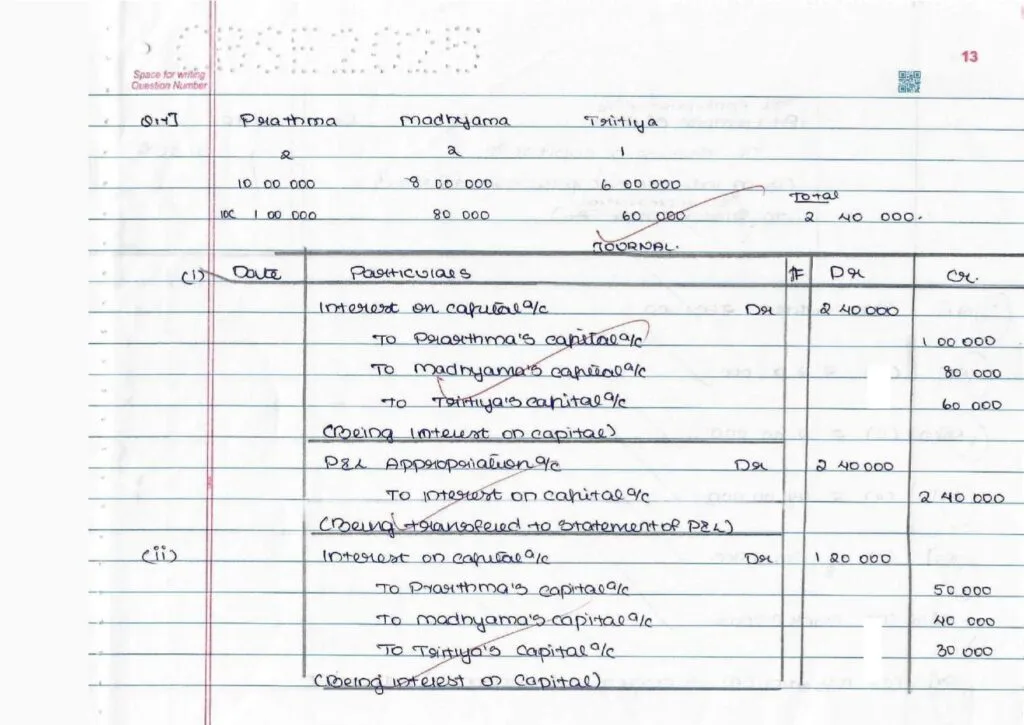 CBSE 2025
13
Space for writing
Question Number
Q17] Prathma Madhyama Tritiya
2 2 1
10 00 000 8 00 000 6 00 000
Total
IOC 1 00 000 80 000 60 000 2 40 000.
JOURNAL.
(i) Date Particulars Dr Cr.
Interest on capital a/c Dr 2 40 000
To Prarthma's capital a/c 1 00 000
To Madhyama's capital a/c 80 000
To Tritiya's capital a/c 60 000
(Being interest on capital)
P&L Appropriation a/c Dr 2 40 000
To interest on capital a/c 2 40 000
(Being transfered to statement of P&L)
(ii) Interest on capital a/c Dr 1 20 000
To Prarthma's capital a/c 50 000
To madhyama's capital a/c 40 000
To Tritiya's capital a/c 30 000
(Being interest on capital)